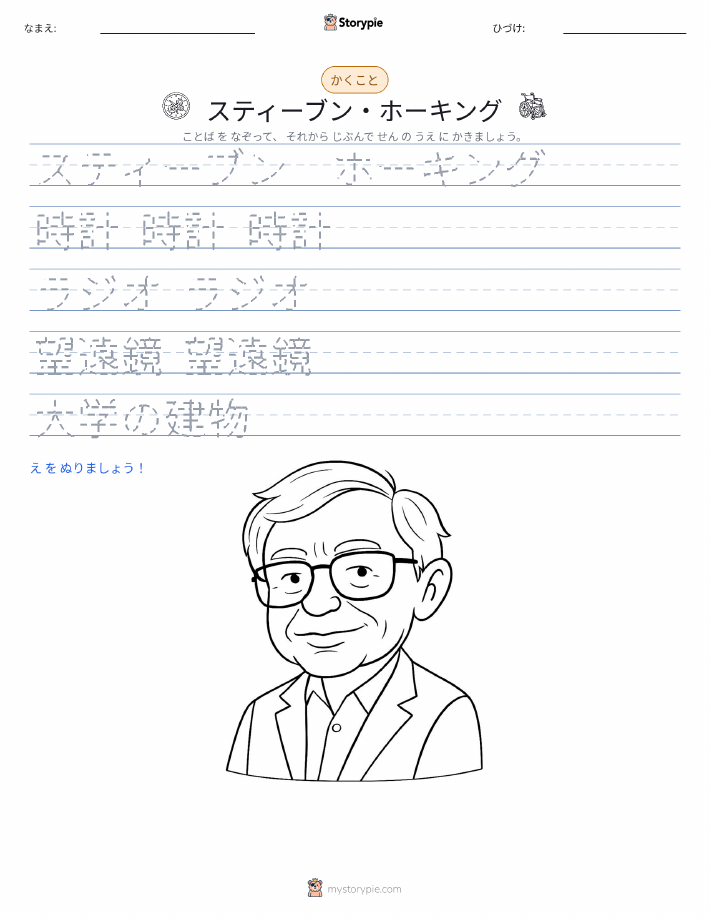 なまえ:
Storypie
ひづけ:
かくこと
スティーブン・ホーキング
ことば を なぞって、 それから じぶんで せん の うえ に かきましょう。
スティーブン ホーキング
時計 時計 時計
ラジオ ラジオ
望遠鏡 望遠鏡
大学の建物
え を ぬりましょう！
mystorypie.com